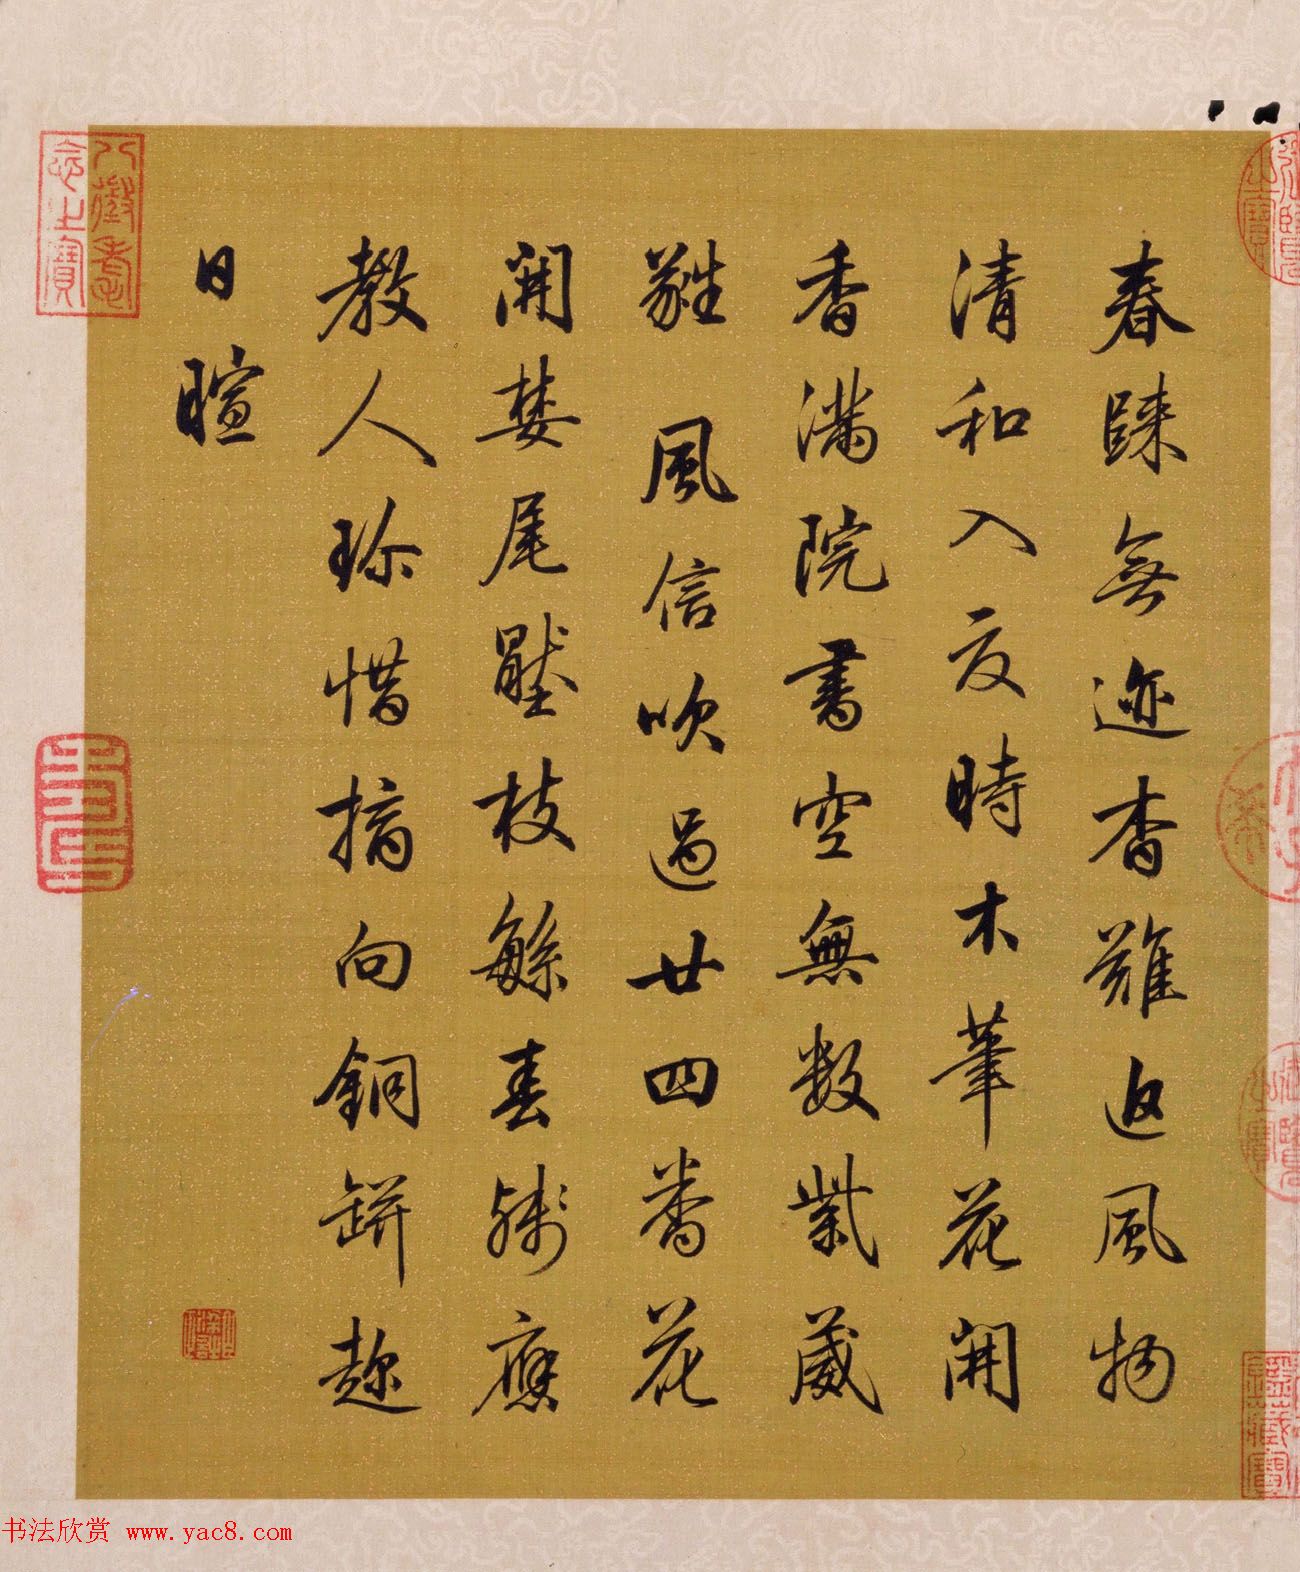 春歸無迹杳難追風物
清和入夏時木筆花開
香滿院書空無數紫葳
蕤 風信吹過廿四番花
開婪尾壓枝繁春殘應
教人珍惜摘向銅缾趁
日暄
八徵耄念之寶
书法欣赏 www.yac8.com